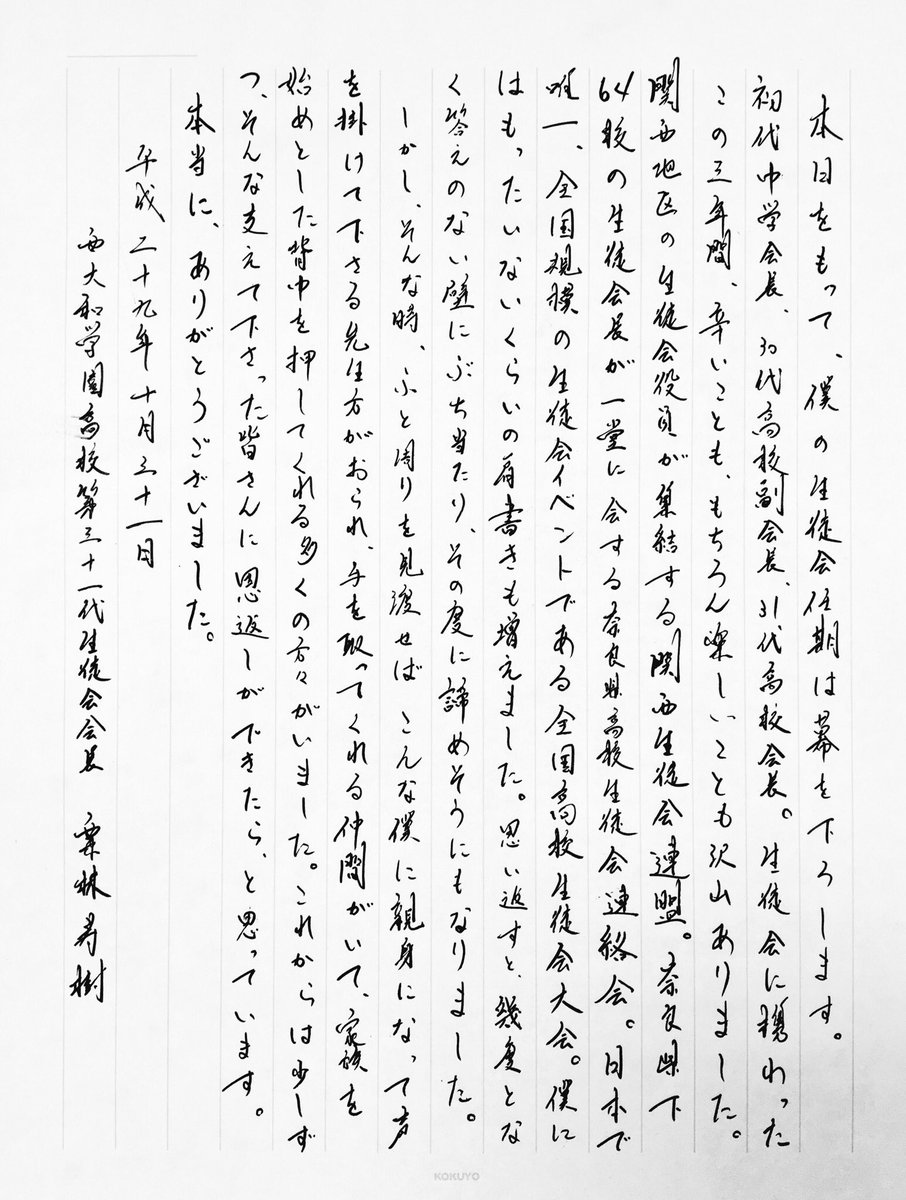 本日をもって、僕の生徒会任期は幕を下ろします。
初代中学会長、30代高校副会長、31代高校会長。生徒会に携わった
この三年間、辛いことも、もちろん楽しいことも沢山ありました。
関西地区の生徒会役員が集結する関西生徒会連盟。奈良県下
64校の生徒会長が一堂に会する奈良県高校生徒会連絡会。日本で
唯一、全国規模の生徒会イベントである全国高校生徒会大会。僕に
はもったいないくらいの肩書きも増えました。思い返すと、幾度とな
く答えのない壁にぶち当たり、その度に諦めそうにもなりました。
しかし、そんな時、ふと周りを見渡せばこんな僕に親身になって声
を掛けて下さる先生方がおられ、手を取ってくれる仲間がいて、家族を
始めとした背中を押してくれる多くの方々がいました。これからは少しず
つ、そんな支えて下さった皆さんに恩返しができたら、と思っています。
本当に、ありがとうございました。
平成二十九年十月三十一日
西大和学園高校第三十一代生徒会会長 栗林寿樹
KOKUYO